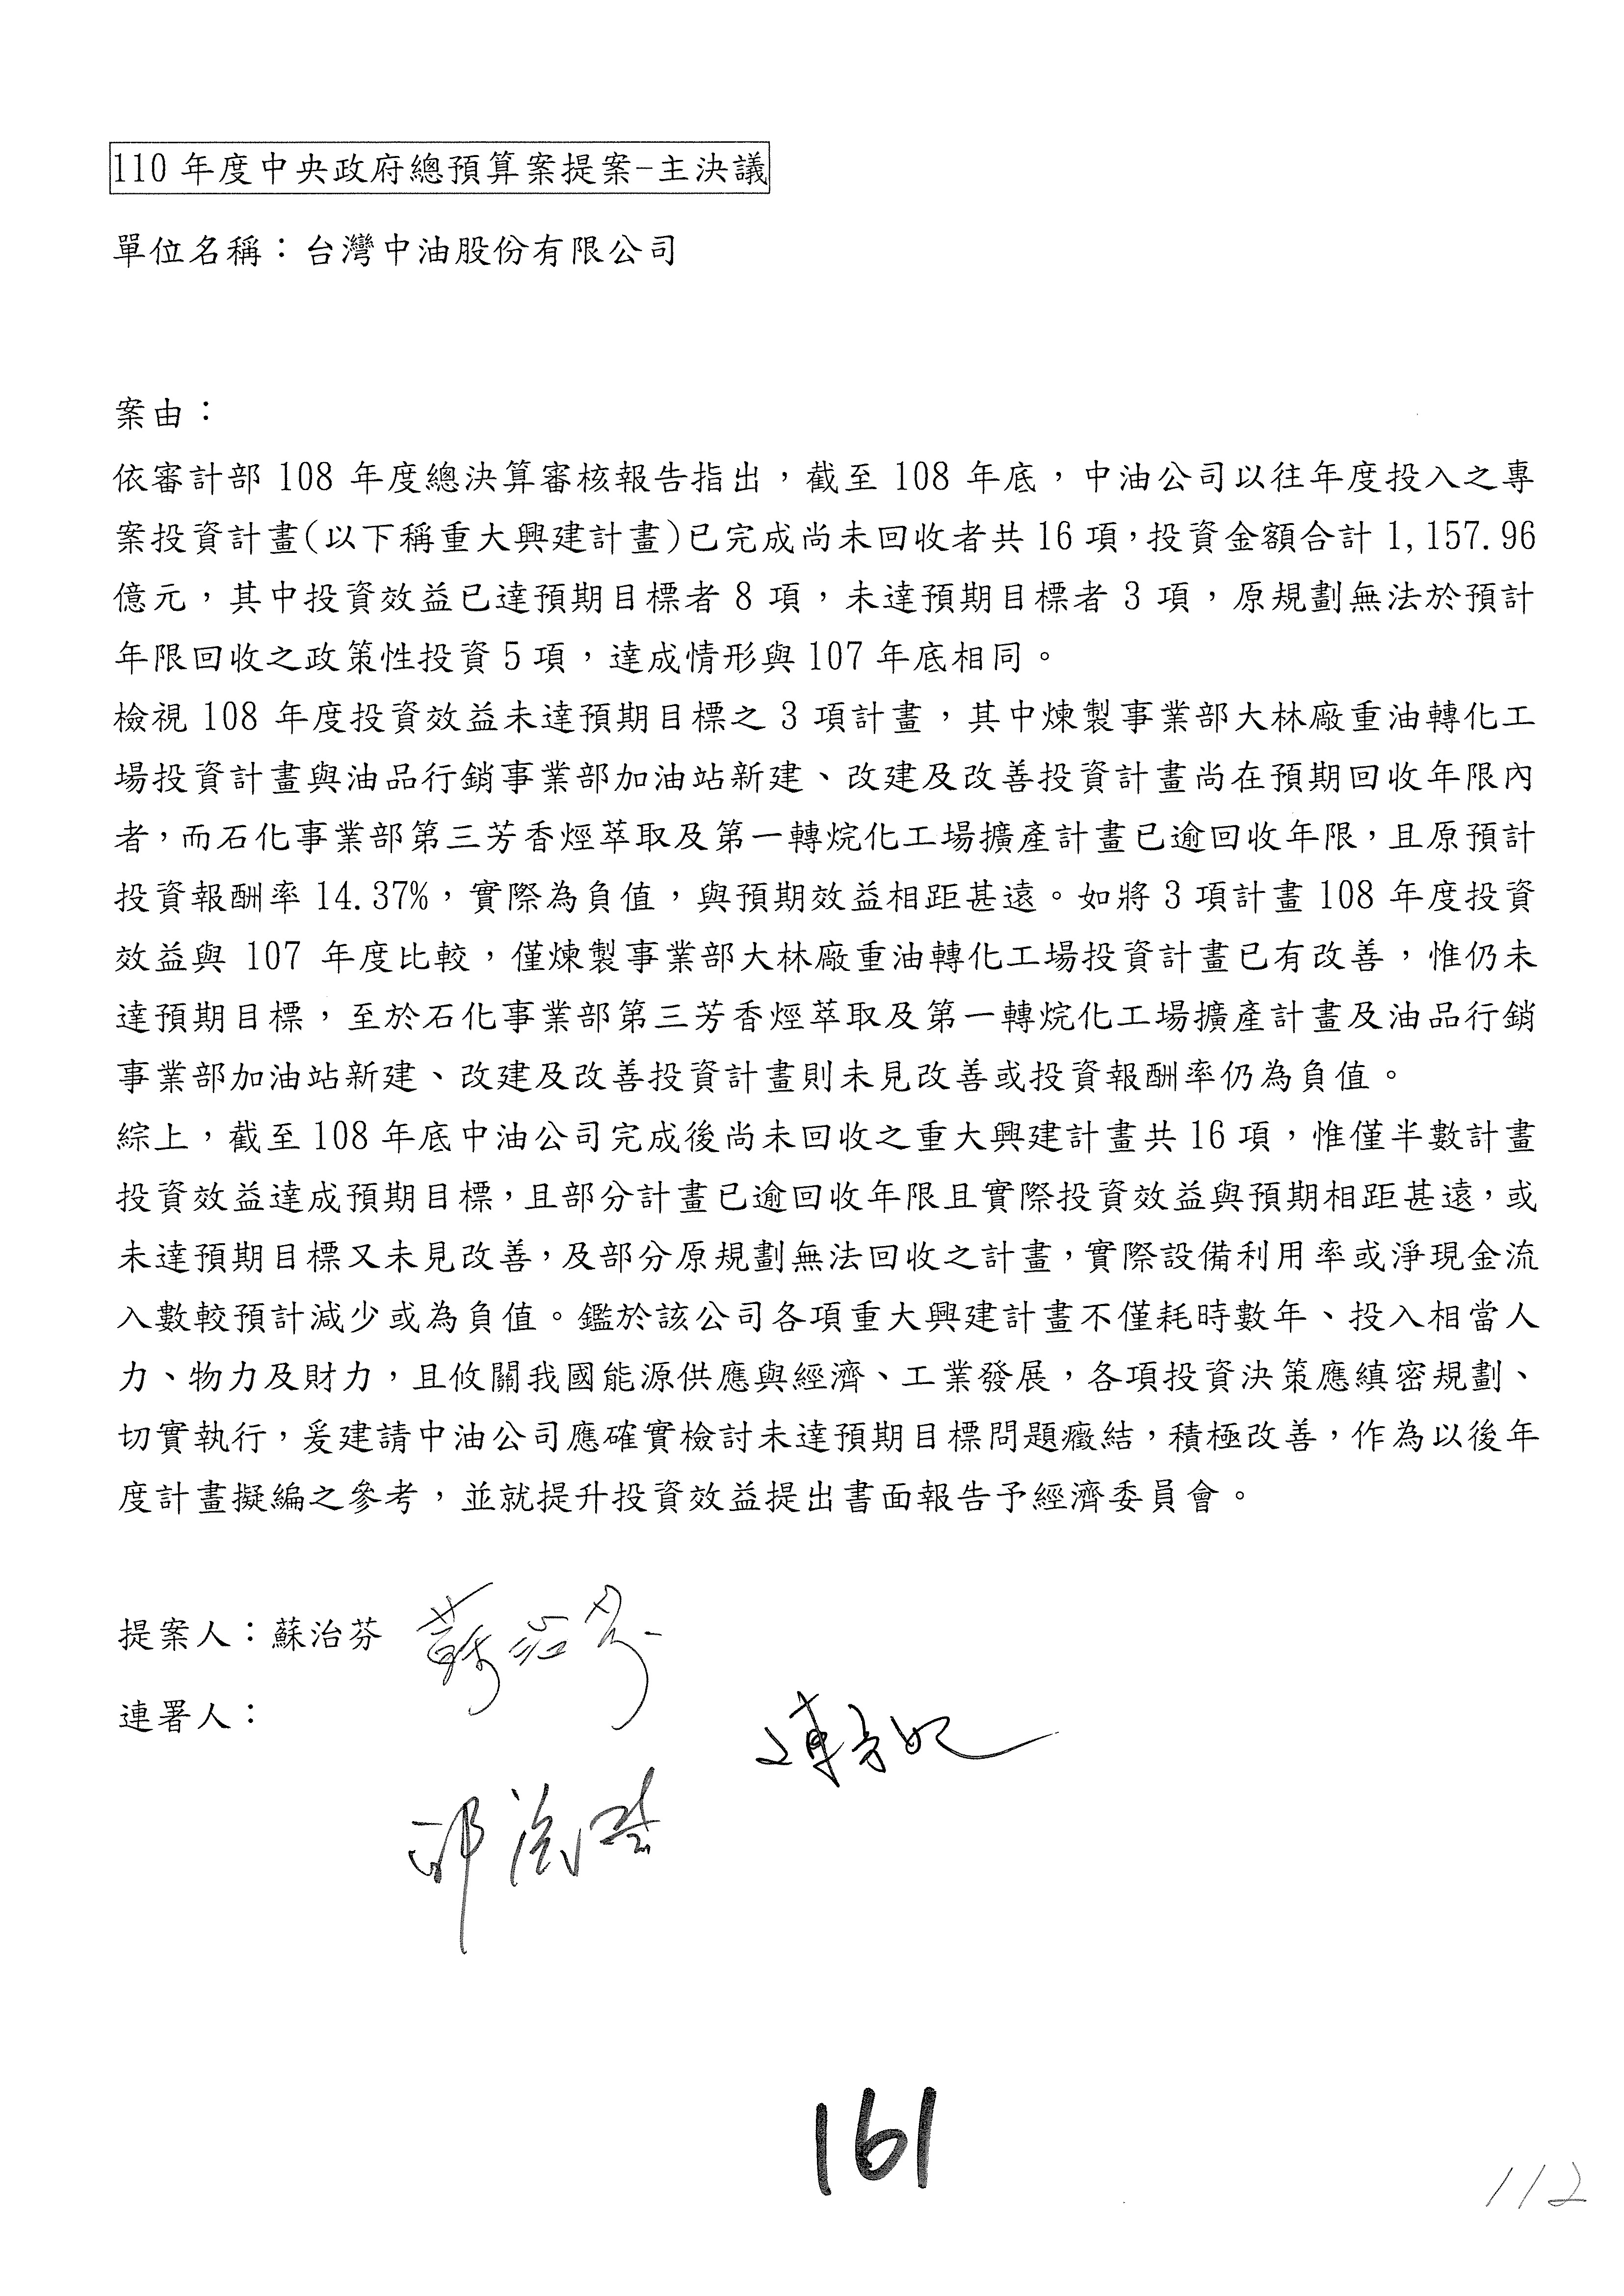 110 年度中央政府總預算案提案-主決議
單位名稱：台灣中油股份有限公司
案由：
依審計部 108 年度總決算審核報告指出，截至 108 年底，中油公司以往年度投入之專
案投資計畫(以下稱重大興建計畫)已完成尚未回收者共 16 項，投資金額合計 1,157.96
億元，其中投資效益已達預期目標者 8 項，未達預期目標者 3 項，原規劃無法於預計
年限回收之政策性投資 5 項，達成情形與 107 年底相同。
檢視 108 年度投資效益未達預期目標之 3 項計畫，其中煉製事業部大林廠重油轉化工
場投資計畫與油品行銷事業部加油站新建、改建及改善投資計畫尚在預期回收年限內
者，而石化事業部第三芳香烴萃取及第一轉烷化工場擴產計畫已逾回收年限，且原預計
投資報酬率 14.37%，實際為負值，與預期效益相距甚遠。如將 3 項計畫 108 年度投資
效益與 107 年度比較，僅煉製事業部大林廠重油轉化工場投資計畫已有改善，惟仍未
達預期目標，至於石化事業部第三芳香烴萃取及第一轉烷化工場擴產計畫及油品行銷
事業部加油站新建、改建及改善投資計畫則未見改善或投資報酬率仍為負值。
綜上，截至 108 年底中油公司完成後尚未回收之重大興建計畫共 16 項，惟僅半數計畫
投資效益達成預期目標，且部分計畫已逾回收年限且實際投資效益與預期相距甚遠，或
未達預期目標又未見改善，及部分原規劃無法回收之計畫，實際設備利用率或淨現金流
入數較預計減少或為負值。鑑於該公司各項重大興建計畫不僅耗時數年、投入相當人
力、物力及財力，且攸關我國能源供應與經濟、工業發展，各項投資決策應縝密規劃、
切實執行，爰建請中油公司應確實檢討未達預期目標問題癥結，積極改善，作為以後年
度計畫擬編之參考，並就提升投資效益提出書面報告予經濟委員會。
提案人：蘇治芬 蘇治芬
連署人：
陳亭妃
邱議瑩
161
112